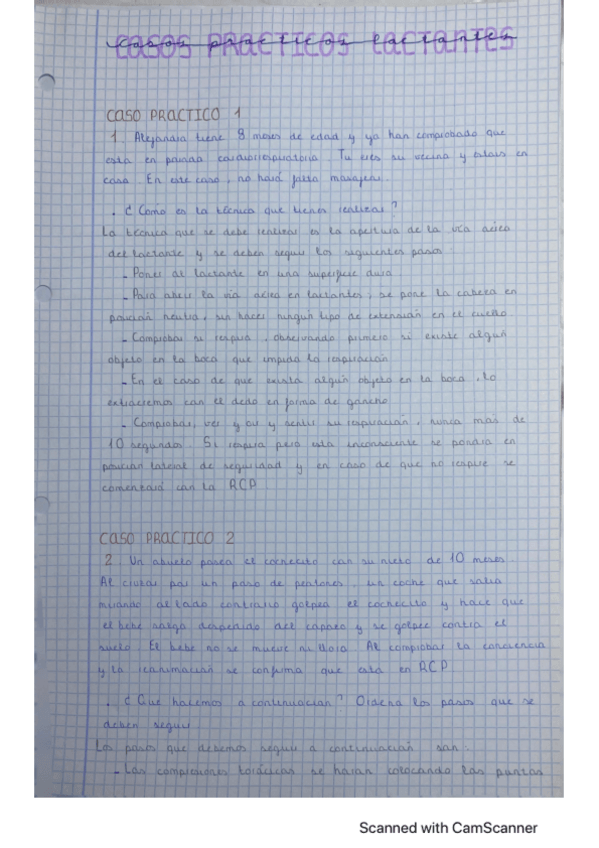 CASOS PRACTICOS LACTANTES
CASO PRACTICO 1
1. Alejandra tiene 8 meses de edad y ya han comprobado que
esta en parada cardiorrespiratoria. Tu eres su vecina y estais en
casa. En este caso, no hará falta masajear.
. ¿ Como es la técnica que tienes realizar ?
La técnica que se debe realizar es la apertura de la vía aérea
del lactante y se deben seguir los siguientes pasos:
- Poner al lactante en una superficie dura
- Para abrir la vía aérea en lactantes, se pone la cabeza en
posición neutra, sin hacer ningún tipo de extensión en el cuello.
- Comprobar si respira, observando primero si existe algún
objeto en la boca que impida la respiración
- En el caso de que exista algún objeto en la boca, lo
extraeremos con el dedo en forma de gancho
- Comprobar, ver y oir y sentir su respiración, nunca más de
10 segundos. Si respira pero esta inconsciente se pondría en
posición lateral de seguridad y en caso de que no respire se
comenzará con la RCP
CASO PRACTICO 2
2. Un abuelo pasea el cochecito con su nieto de 10 meses.
Al cruzar por un paso de peatones, un coche que salia
mirando al lado contrario golpea el cochecito y hace que
el bebe salga despedido del capazo y se golpee contra el
suelo. El bebe no se mueve ni llora. Al comprobar la conciencia
y la reanimación se confirma que esta en RCP
. ¿ Que hacemos a continuación ? Ordena los pasos que se
deben seguir
Los pasos que debemos seguir a continuación son:
- Las compresiones torácicas se harán colocando las puntas
Scanned with CamScanner